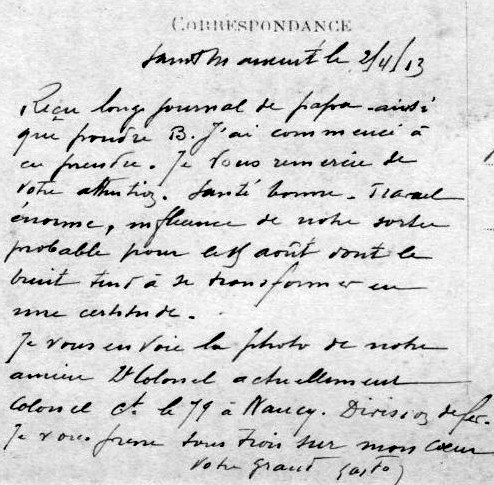 CORRESPONDANCE
Saint Maixent le 2/4/13
Reçu long journal de papa ainsi
que poudre B. J'ai commencé à
en prendre. Je vous remercie de
votre attention. Santé bonne - Travail
énorme, influence de notre sortie
probable pour le 15 août dont le
bruit tend à se transformer en
une certitude.
Je vous envoie la photo de notre
ancien Lt Colonel actuellement
Colonel ct. le 79 à Nancy. Division de fer.
Je vous presse tous trois sur mon cœur
Votre grand Gaston